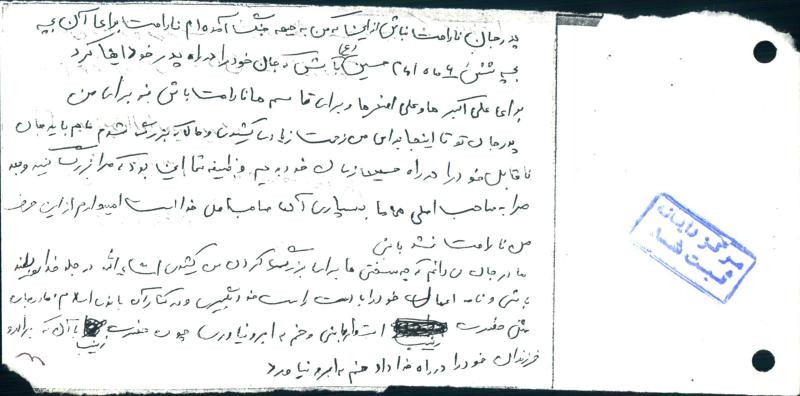 پدر جان ناراحت نباش از اینکه من به جبهه جنگ آمده‌ام ناراحت برای آن بچه
بچه شش ماه امام حسین (ع) باش که جان خود را در راه پدر خود اهدا کرد
برای علی اکبرها و علی اصغرها و برای قاسم‌ها ناراحت باش نه برای من
پدر جان تو تا اینجا برای من زحمت زیادی کشیدی و حالا که بزرگ شدم باید جان
ناقابل خود را در راه حسین زمان خود بدهم وظیفه شما این بود که مرا بزرگ کنید و بعد
مرا به صاحب اصلی ما بسپاری آن صاحب اصل خدا است امیدوارم از این حرف
من ناراحت نشد باش
مادر جان می دانم که چه سختی ها برای بزرگ کردن من کشیدی انشاءالله در جلد خدا
باشی و نامه اعمال خود را با دست راست خود بگیری و در کنار آن بانوی اسلام مادر جان
مثل حضرت زینب استوار باش و خم به ابرو نیاور چون حضرت زینب با آن که برادر و
فرزندان خود را در راه خدا داد خم به ابرو نیاورد
مرکز رایانه
ثبت شد